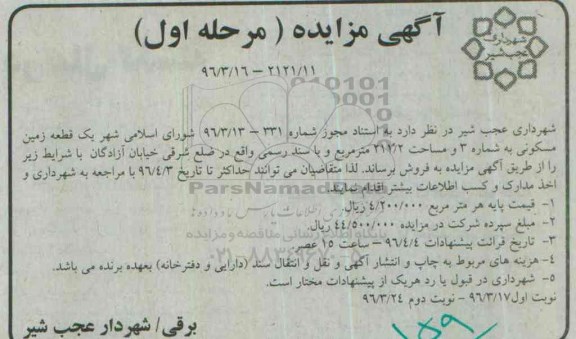 شهرداری
عجب شیر
آگهی مزایده ( مرحله اول)
۹۶/۳/۱۶ – ۲۱۲۱/۱۱
شهرداری عجب شیر در نظر دارد به استناد مجوز شماره ۳۳۱ – ۹۶/۳/۱۳ شورای اسلامی شهر یک قطعه زمین
مسکونی به شماره ۳ و مساحت ۲۱۲/۲ مترمربع و با سند رسمی واقع در ضلع شرقی خیابان آزادگان با شرایط زیر
را از طریق آگهی مزایده به فروش برساند. لذا متقاضیان می توانند حداکثر تا تاریخ ۹۶/۴/۳ با مراجعه به شهرداری و
اخذ مدارک و کسب اطلاعات بیشتر اقدام نمایند.
ParsNamad
۱- قیمت پایه هر متر مربع ۴/۲۰۰/۰۰۰ ریال
۲- مبلغ سپرده شرکت در مزایده ۴۴/۵۰۰/۰۰۰ ریال
پایگاه اطلاع رسانی مناقصه و مزایده
۳- تاریخ قرائت پیشنهادات ۹۶/۴/۴ – ساعت ۱۵ عصر
۴- هزینه های مربوط به چاپ و انتشار آگهی و نقل و انتقال سند (دارایی و دفترخانه) بعهده برنده می باشد.
۵- شهرداری در قبول یا رد هریک از پیشنهادات مختار است.
نوبت اول۹۶/۳/۱۷ – نوبت دوم ۹۶/۳/۲۴
برقی/ شهردار عجب شیر